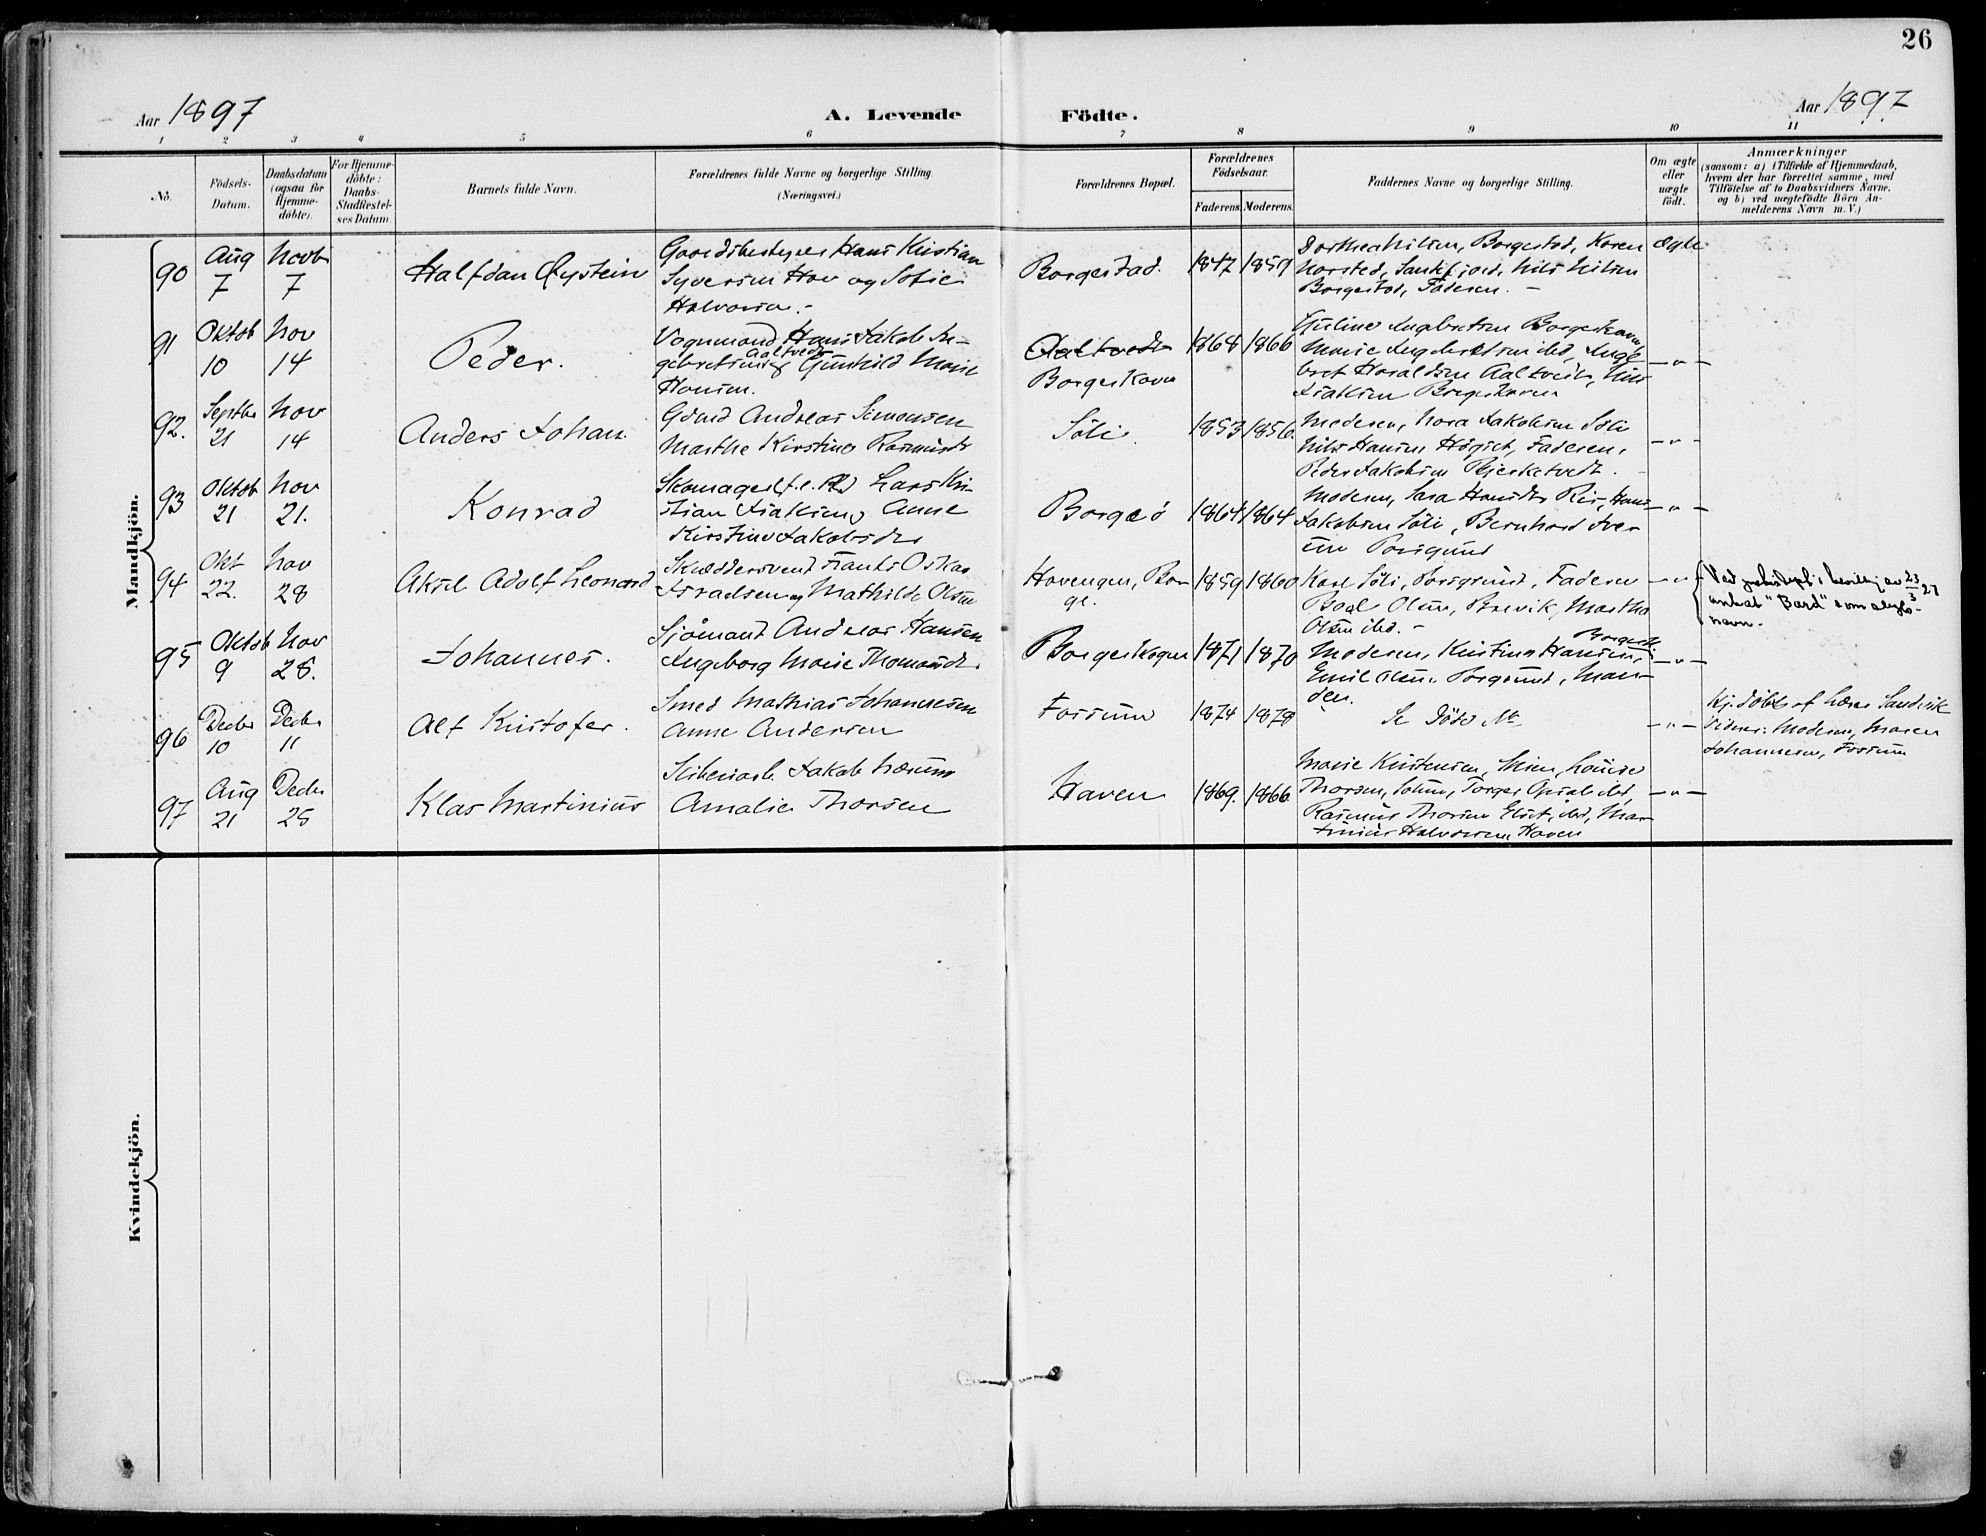 26
Aar 1897
A. Levende Födte.
Aar 1897
1 2 3 4 5 6 7 8 9 10 11
No.
Födsels-
Datum.
Daabsdatum
(ogsaa for
Hjemme-
döbte).
For Hjemme-
döbte:
Daabs-
Stadfæstel-
ses Datum.
Barnets fulde Navn.
Forældrenes fulde Navne og borgerlige Stilling.
(Næringsvei.)
Forældrenes Bopæl.
Forældrenes
Födselsaar.
Faderens. Moderens.
Faddernes Navne og borgerlige Stilling.
Om ægte
eller
uægte
födt.
Anmærkninger
(saasom: a) i Tilfælde af Hjemmedaab,
hvem der har forrettet samme, med
Tilföielse af to Daabsvidners Navne.
og b) ved uægtefödte Börn An-
melderens Navn m. V.)
Mandkjön.
90
Aug
7
Novb
7
Halfdan Øystein
Gaardsbestyrer Hans Kristian
Syversen Hov og Sofie
Halvorsen.-
Borgestad.
1847 1859
Dorthea Nilsen, Borgestad, Karen
Norsted, Sandefjord, Nils Nilsen
Borgestad, Faderen. -
Ægte
91
Oktob
10
Nov
14
Peder.
Vognmand Hans Jakob In-
gebretsen Aaltvedt og Gunhild Marie
Hansen.
Aaltvedt
Borgeskoven
1868 1866
Borgeskoven,
Marie Ingebretsen ibd, Inge
bret Haraldsen Aaltvedt, Nils
Isaksen Borgeskoven
-"-
92.
Septbr
21
Nov
14
Anders Johan.
Gbmd Andreas Simonsen
Marthe Kirstine Rasmusdr
Söli.
1853 1856.
Moderen, Nora Jakobsen Söli
Nils Hansen Faderen,
Peder Jakobsen Bjerketvedt.
-"-
93
Oktob
21
Nov
21.
Konrad
Skomager Lars Kri-
stian Isaksen, Anne
Kirstine Jakobsdr
Borgeö
1864 1864
Moderen, Sara Hansdr Hans
Jakobsen Söli, Bernhard Iver
sen Porsgrund
-"-
94
Okt
22.
Nov
28
Aksel Adolf Leonard
Skræddersvend Frants Oskar
Israelsen og Mathilde Olsen
Hovengen, Bor
ge.
1859 1860
Karl Söli, Porsgrund, Faderen
Boel Olsen, Brevik, Martha
Olsen ibd. -
-"-
antat "Bard" som slegts-
navn.
95
Oktob
9
Nov
28.
Johannes.
Sjömand Andreas Hansen
Ingeborg Marie Thomasdr
Borgeskogen
1871 1870
Moderen, Kristine Hansen,
Emil Olsen Porsgrund, Man-
den.
-"-
96
Decbr
10
Decbr
11
Alf Kristofer.
Smed Mathias Johannesen
Anne Andersen
Fossum
1874 1879
Se Döde No
-"-
Hj. döbt af Lærer Sandvik
Vidner: Moderen, Maren
Johannesen, Fossum
97
Aug
21
Decbr
26
Klas Martinius
Jakob Larsen
Amalie Thorsen
Haven
1869. 1866
Marie Kristensen, Louise
Thorsen, Torger ibd,
Rasmus Thorsen ibd, Mar
tinius Halvorsen Haven
-"-
Kvindekjön.